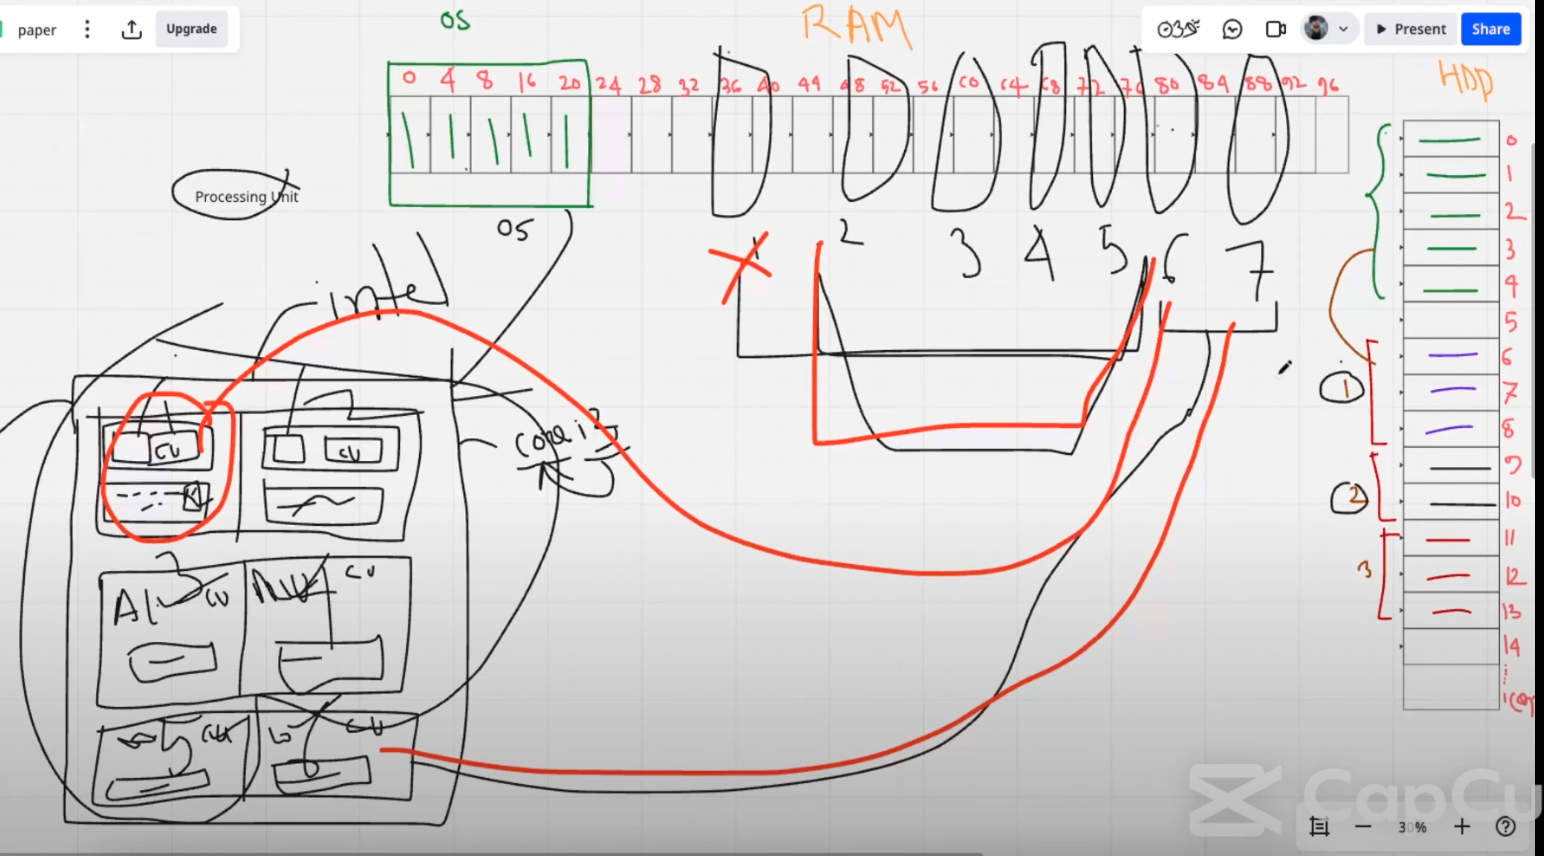 paper
Upgrade
Present
Share
OS
RAM
HDD
0 4 8 16 20 24 28 32 36 40 44 48 52 56 60 64 68 72 76 80 84 88 92 96
Processing Unit
OS
intel
1 2 3 4 5 6 7
core i3
CU
CU
CU
CU
CU
0
1
2
3
4
5
6
7
8
9
10
11
12
13
14
1
2
3
30%
CapCu